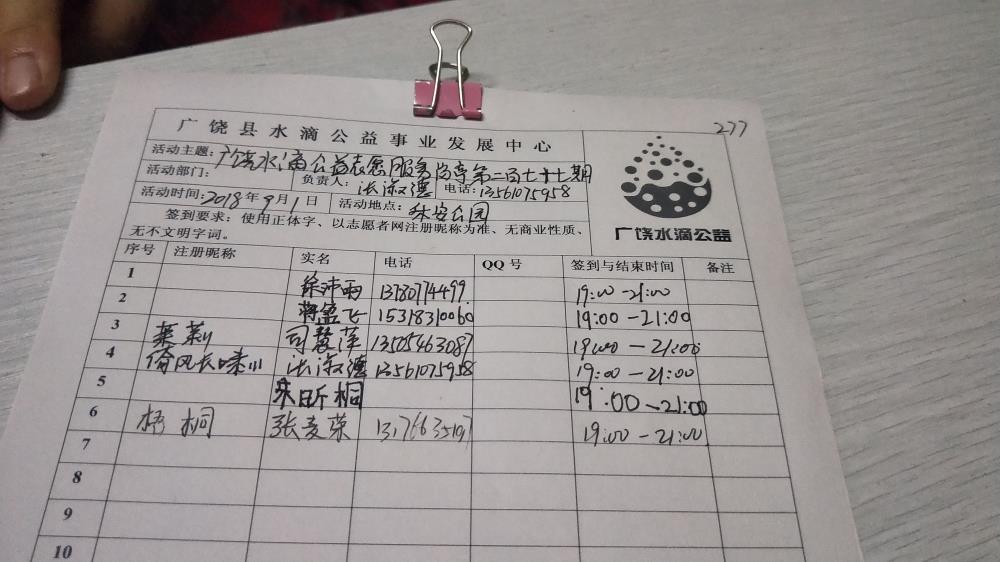 277
广饶县水滴公益事业发展中心
活动主题：广饶水滴公益志愿服务岗亭第二百七十七期
活动部门： 负责人： 张淑德 电话：13561075958
活动时间：2018年9月1日 活动地点：休安公园
签到要求：使用正体字、以志愿者网注册昵称为准、无商业性质、
无不文明字词。
广饶水滴公益
序号 注册昵称 实名 电话 QQ号 签到与结束时间 备注
1 徐沛雨 13780774499 19:00-21:00
2 蒋盛飞 15318310060 19:00-21:00
3 茉莉 司慧萍 13505463087 19:00-21:00
4 张淑德 13561075958 19:00-21:00
5 昕桐 19:00-21:00
6 梧桐 张麦荣 19:00-21:00
7
8
9
10